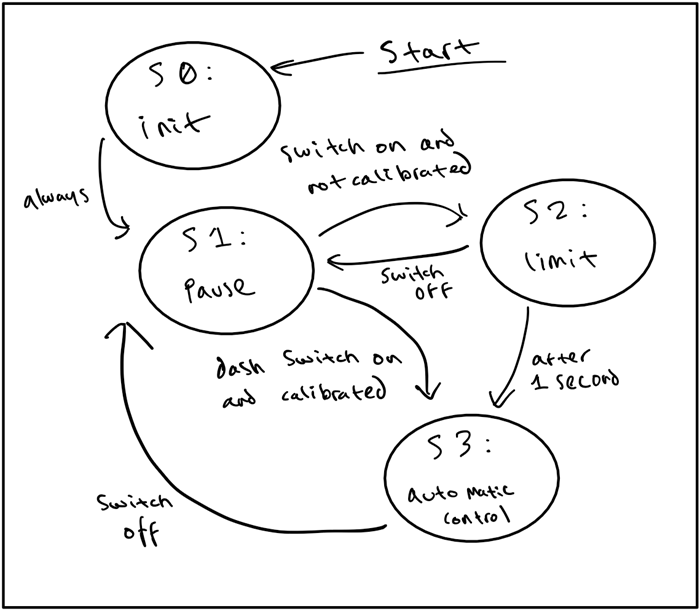 Start
S0:
init
always
Switch on and
not calibrated
S1:
Pause
S2:
limit
Switch
OFF
dash Switch on
and calibrated
after
1 second
S3:
Automatic
control
Switch
off